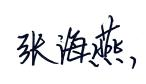 张海燕,